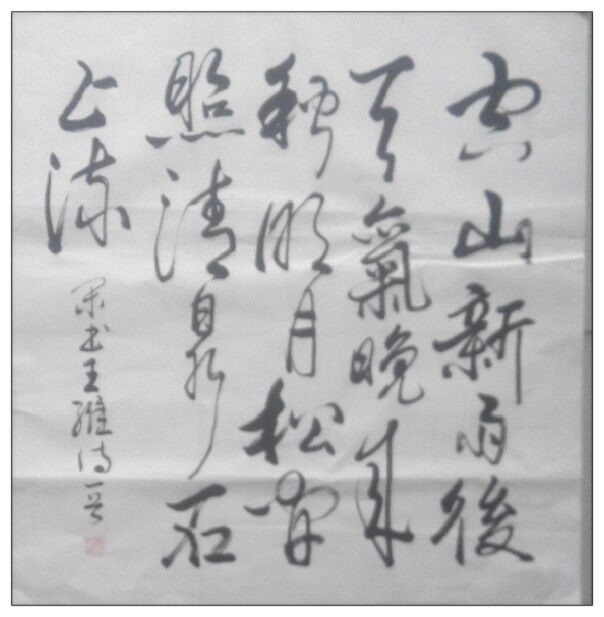 空山新雨後
天氣晚來
秋明月松間
照清泉石
上流
书王維诗一首